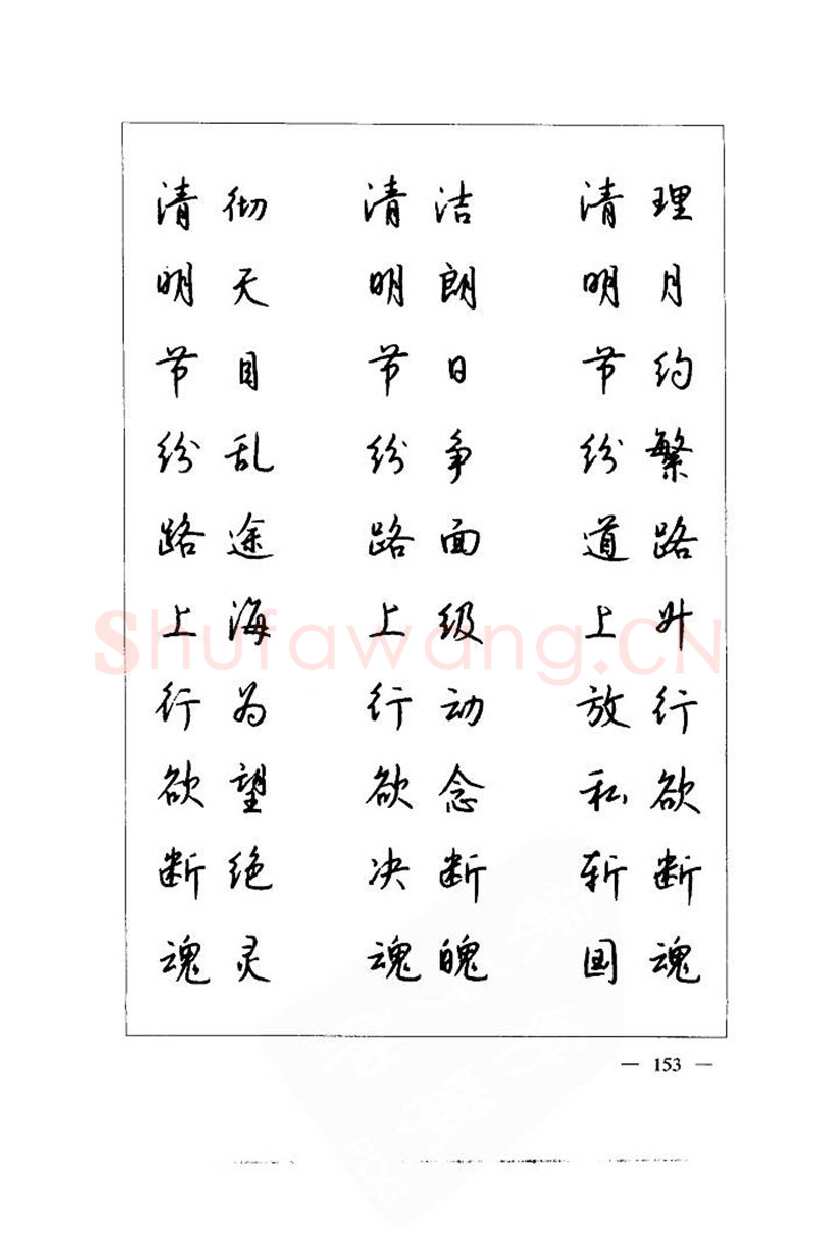 理月约繁路外行欲断魂
清明节纷道上放私斩国
洁朗日争面级动念断魄
清明节纷路上行欲决魂
彻天目乱途海为望绝灵
清明节纷路上行欲断魂
— 153 —
Shufawang.CN